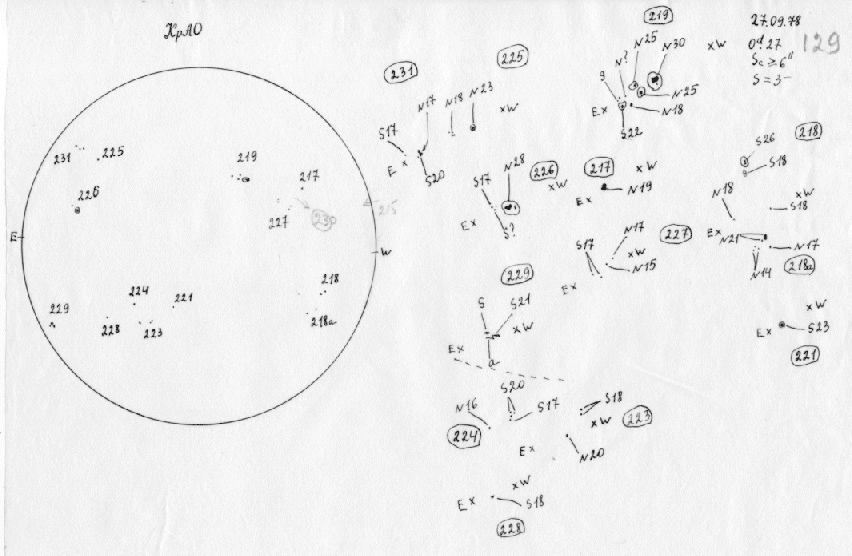 КрАО
27.09.78
129
S = 3-
231
225
219
217
226
227
230
215
E
W
229
224
221
228
223
218
218a
231
225
N17
N18
N23
xW
S17
E x
S20
219
N25
N30
xW
N?
9
N25
E x
N18
S22
S26
218
S18
N18
xW
S18
E x
N21
N17
N14
218a
N28
226
S17
xW
E x
S?
217
xW
E x
N19
N17
227
S17
xW
N15
E x
229
S
S21
xW
E x
a
xW
E x
S23
221
S20
N16
S17
224
S18
xW
223
E x
N20
xW
E x
S18
228